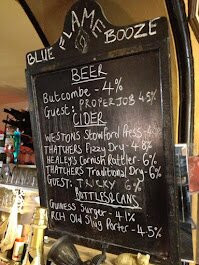 BLUE FLAME BOOZE
BEER
Butcombe - 4%
Guest: PROPER JOB 4.5%
CIDER
WESTONS Stowford Press -
THATCHERS Fizzy Dry - 4.8%
HEALEYS Cornish Rattler - 6%
THATCHERS Traditional Dry - 6%
GUEST: TRICKY 6%
BOTTLES & CANS
Guinness Surger - 4.1%
RCH Old Slug Porter - 4.5%